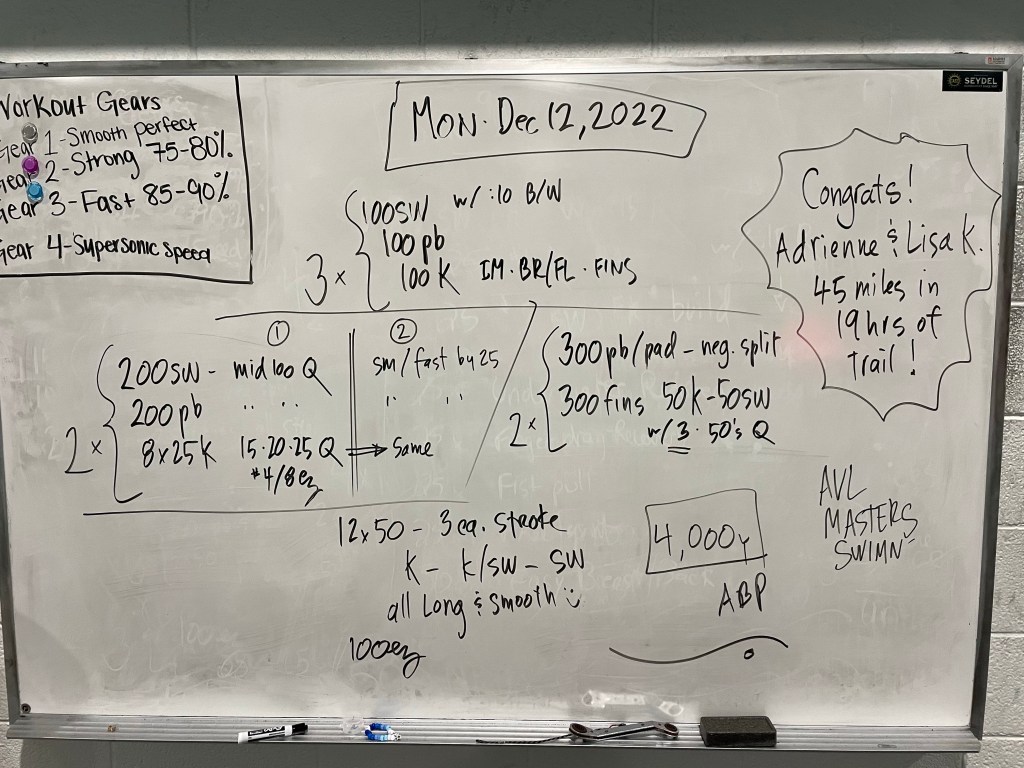 Workout Gears
Gear 1-Smooth perfect
Gear 2-Strong 75-80%
Gear 3-Fast 85-90%
Gear 4-Supersonic Speed
MON. Dec 12, 2022
SEYDEL
3x
100SW w/ :10 B/W
100 pb
100 K IM·BR/FL·FINS
① ②
2x
200SW - mid 100 Q sm/fast by 25
200 pb " " " "
8x25K 15·20·25 Q ⇒ Same
*4/8 ez
2x
300 pb/pad - neg. split
300 fins 50K-50SW
w/ 3 · 50's Q
12x50 - 3 ea. stroke
K - K/SW - SW
all Long & Smooth
100 ez
4,000y
ABP
Congrats!
Adrienne & Lisa K.
45 miles in
19 hrs of
trail!
AVL
MASTERS
SWIMN